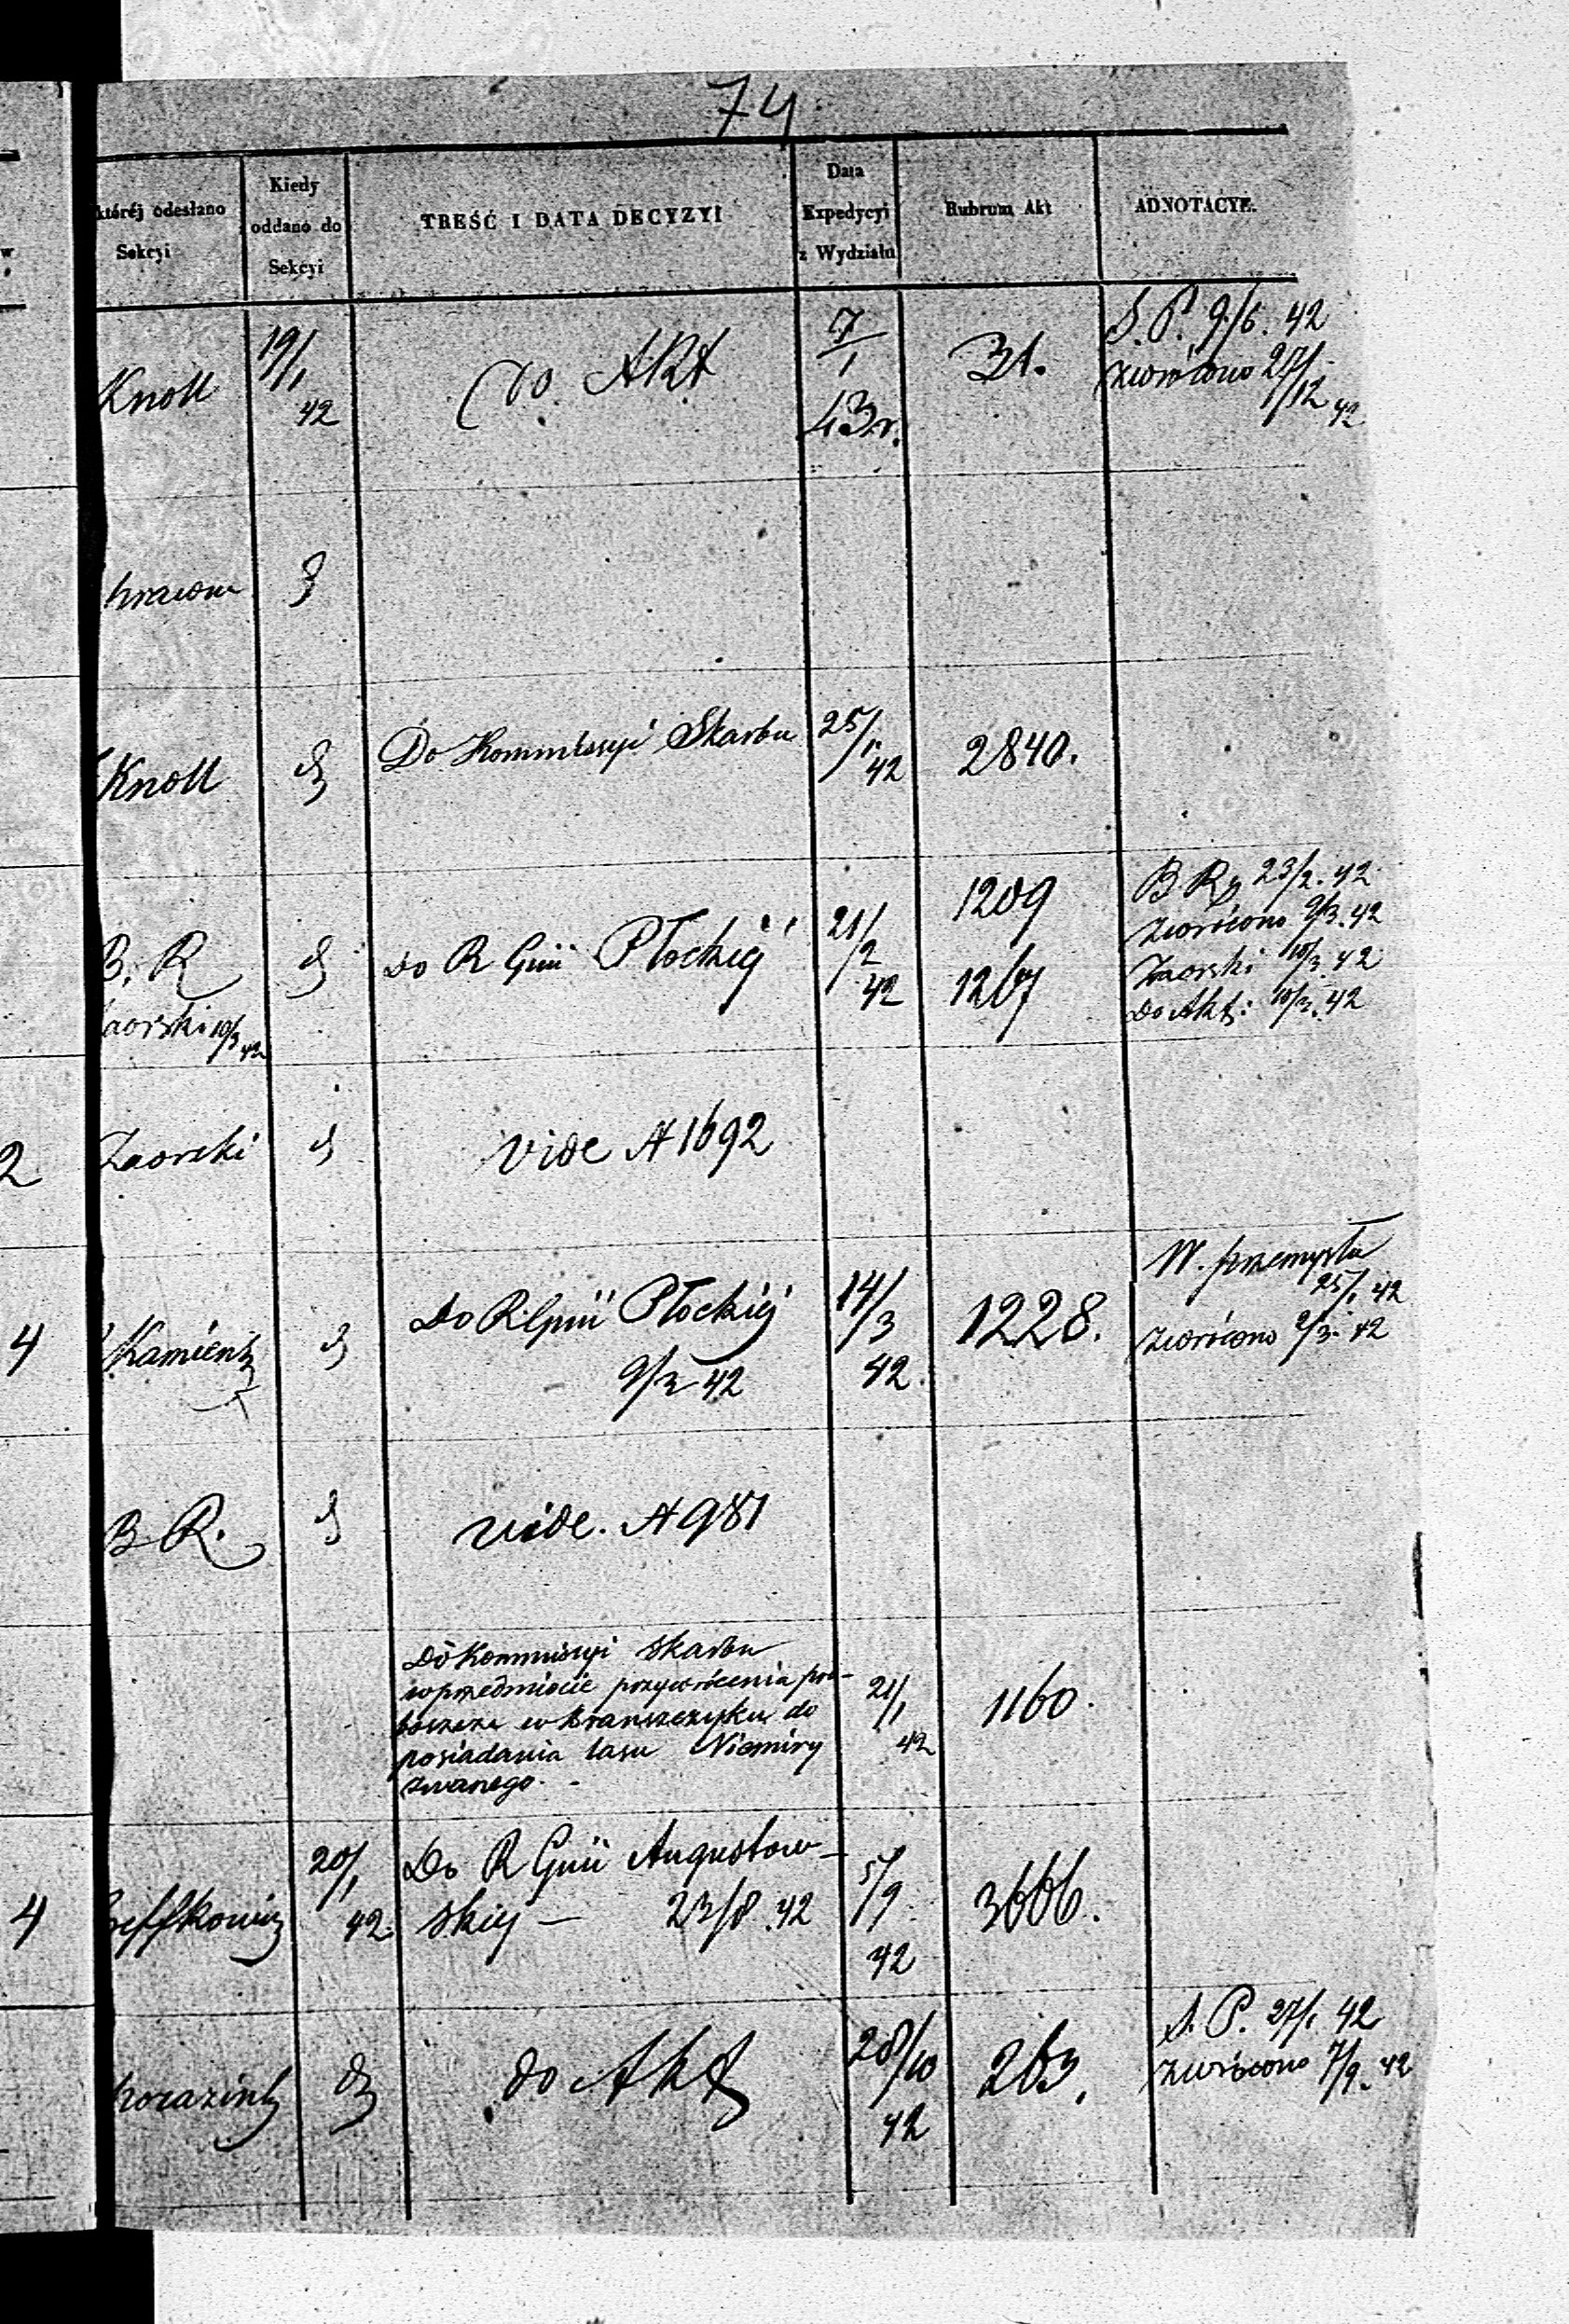 74
któréj odesłano
Sekcyi
Kiedy
oddano do
Sekcyi
TREŚĆ I DATA DECYZYI
Data
Expedycyi
z Wydziału
Rubrum Akt
ADNOTACYE.
Knoll
19/1
42
do Akt
7/1
43 r.
31.
S. P. 9/6. 42
zwrócono 27/12 42
Knoll
Do Kommissyi Skarbu
25/1
42
2840.
B. R
aorski 10/3 42
do R Gnii Płockiéj
21/2
42
1209
1267
B R 23/2. 42
zwrócono 9/3. 42
Zaorski 10/3. 42
do Akt: 10/3. 42
2
Zaorski
vide N 1692
4
Kamieńs
Do R. Gnii Płockiéj
9/3 42
14/3
42.
1228.
W. przemysłu
25/1. 42
zwrócono 9/3. 42
B R.
vide. N 981
Do Kommissyi Skarbu
w przedmiocie przywrócenia pro-
boszcza w Brańszczyku do
posiadania lasu Niemiry
zwanego. -
21/1
42
1160.
4
20/1
42.
Do R Gnii Augustow-
skiéj — 23/8. 42
5/9
42
3666.
do Akt
28/10
42
263.
S. P. 27/1. 42
zwrócono 7/9. 42